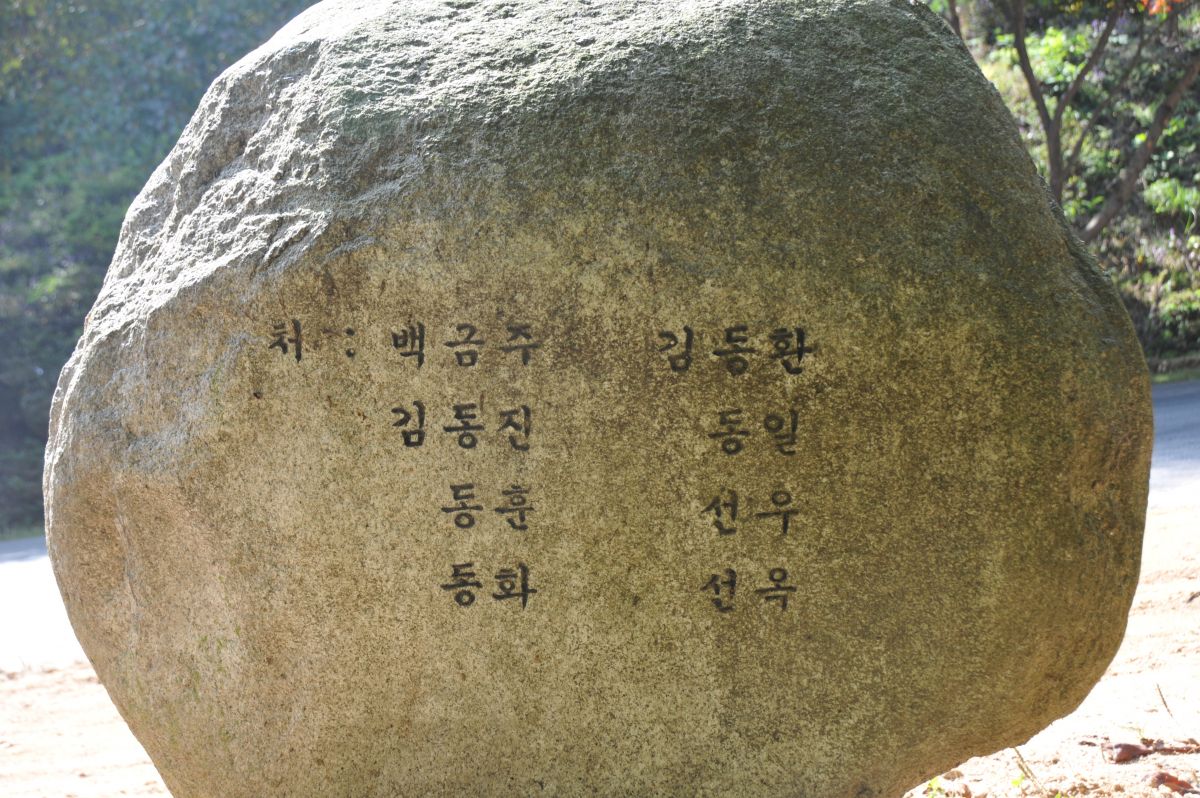 처 : 백금주 김동환
김동진 동일
동훈 선우
동화 선옥